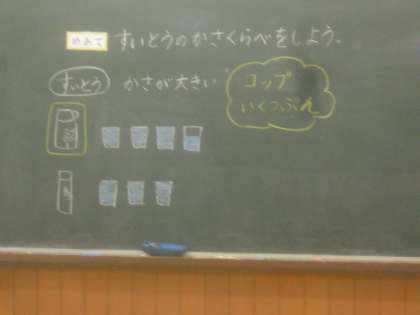 めあて すいとうのかさくらべをしよう。
すいとう かさが大きい
コップ
いくつぶん